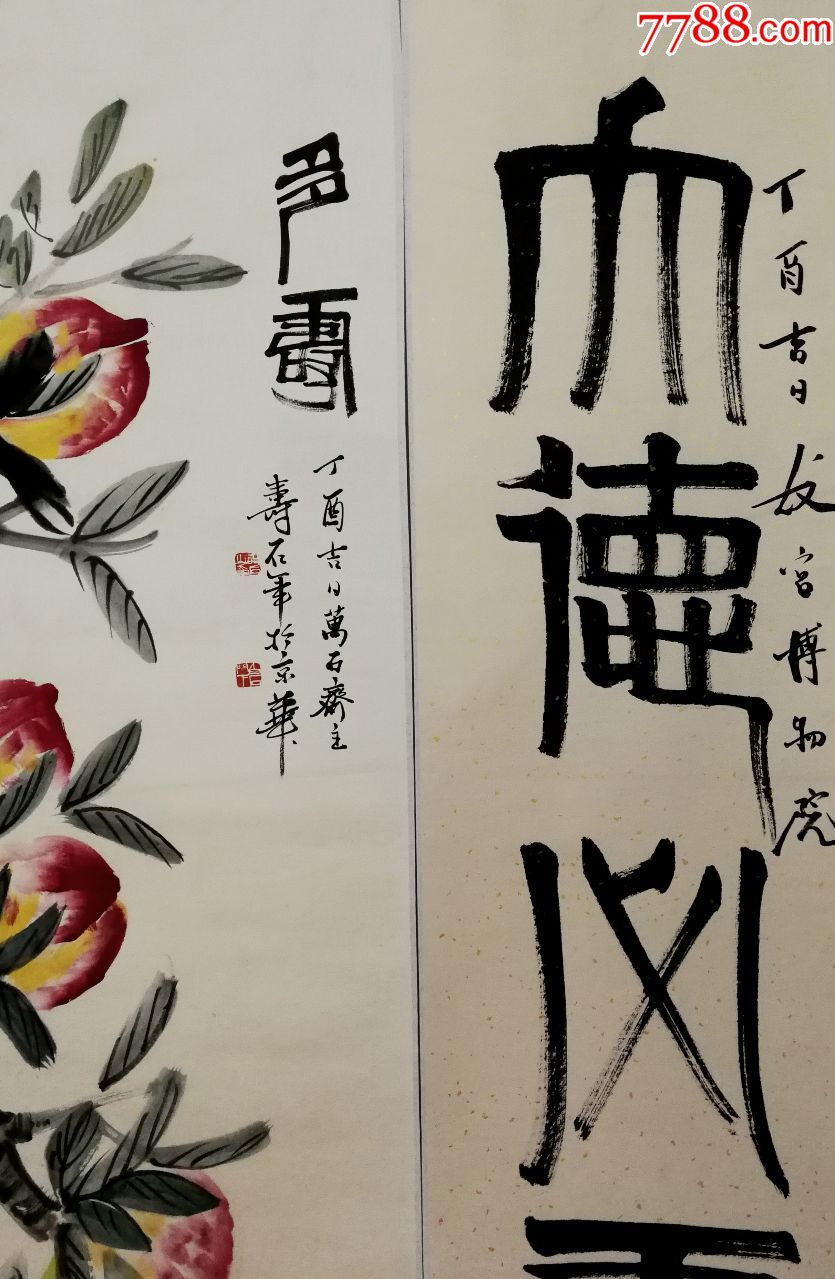 7788.com
丁酉吉日故宫博物院
大德必
多壽
丁酉吉日萬石齋主
壽石於京華